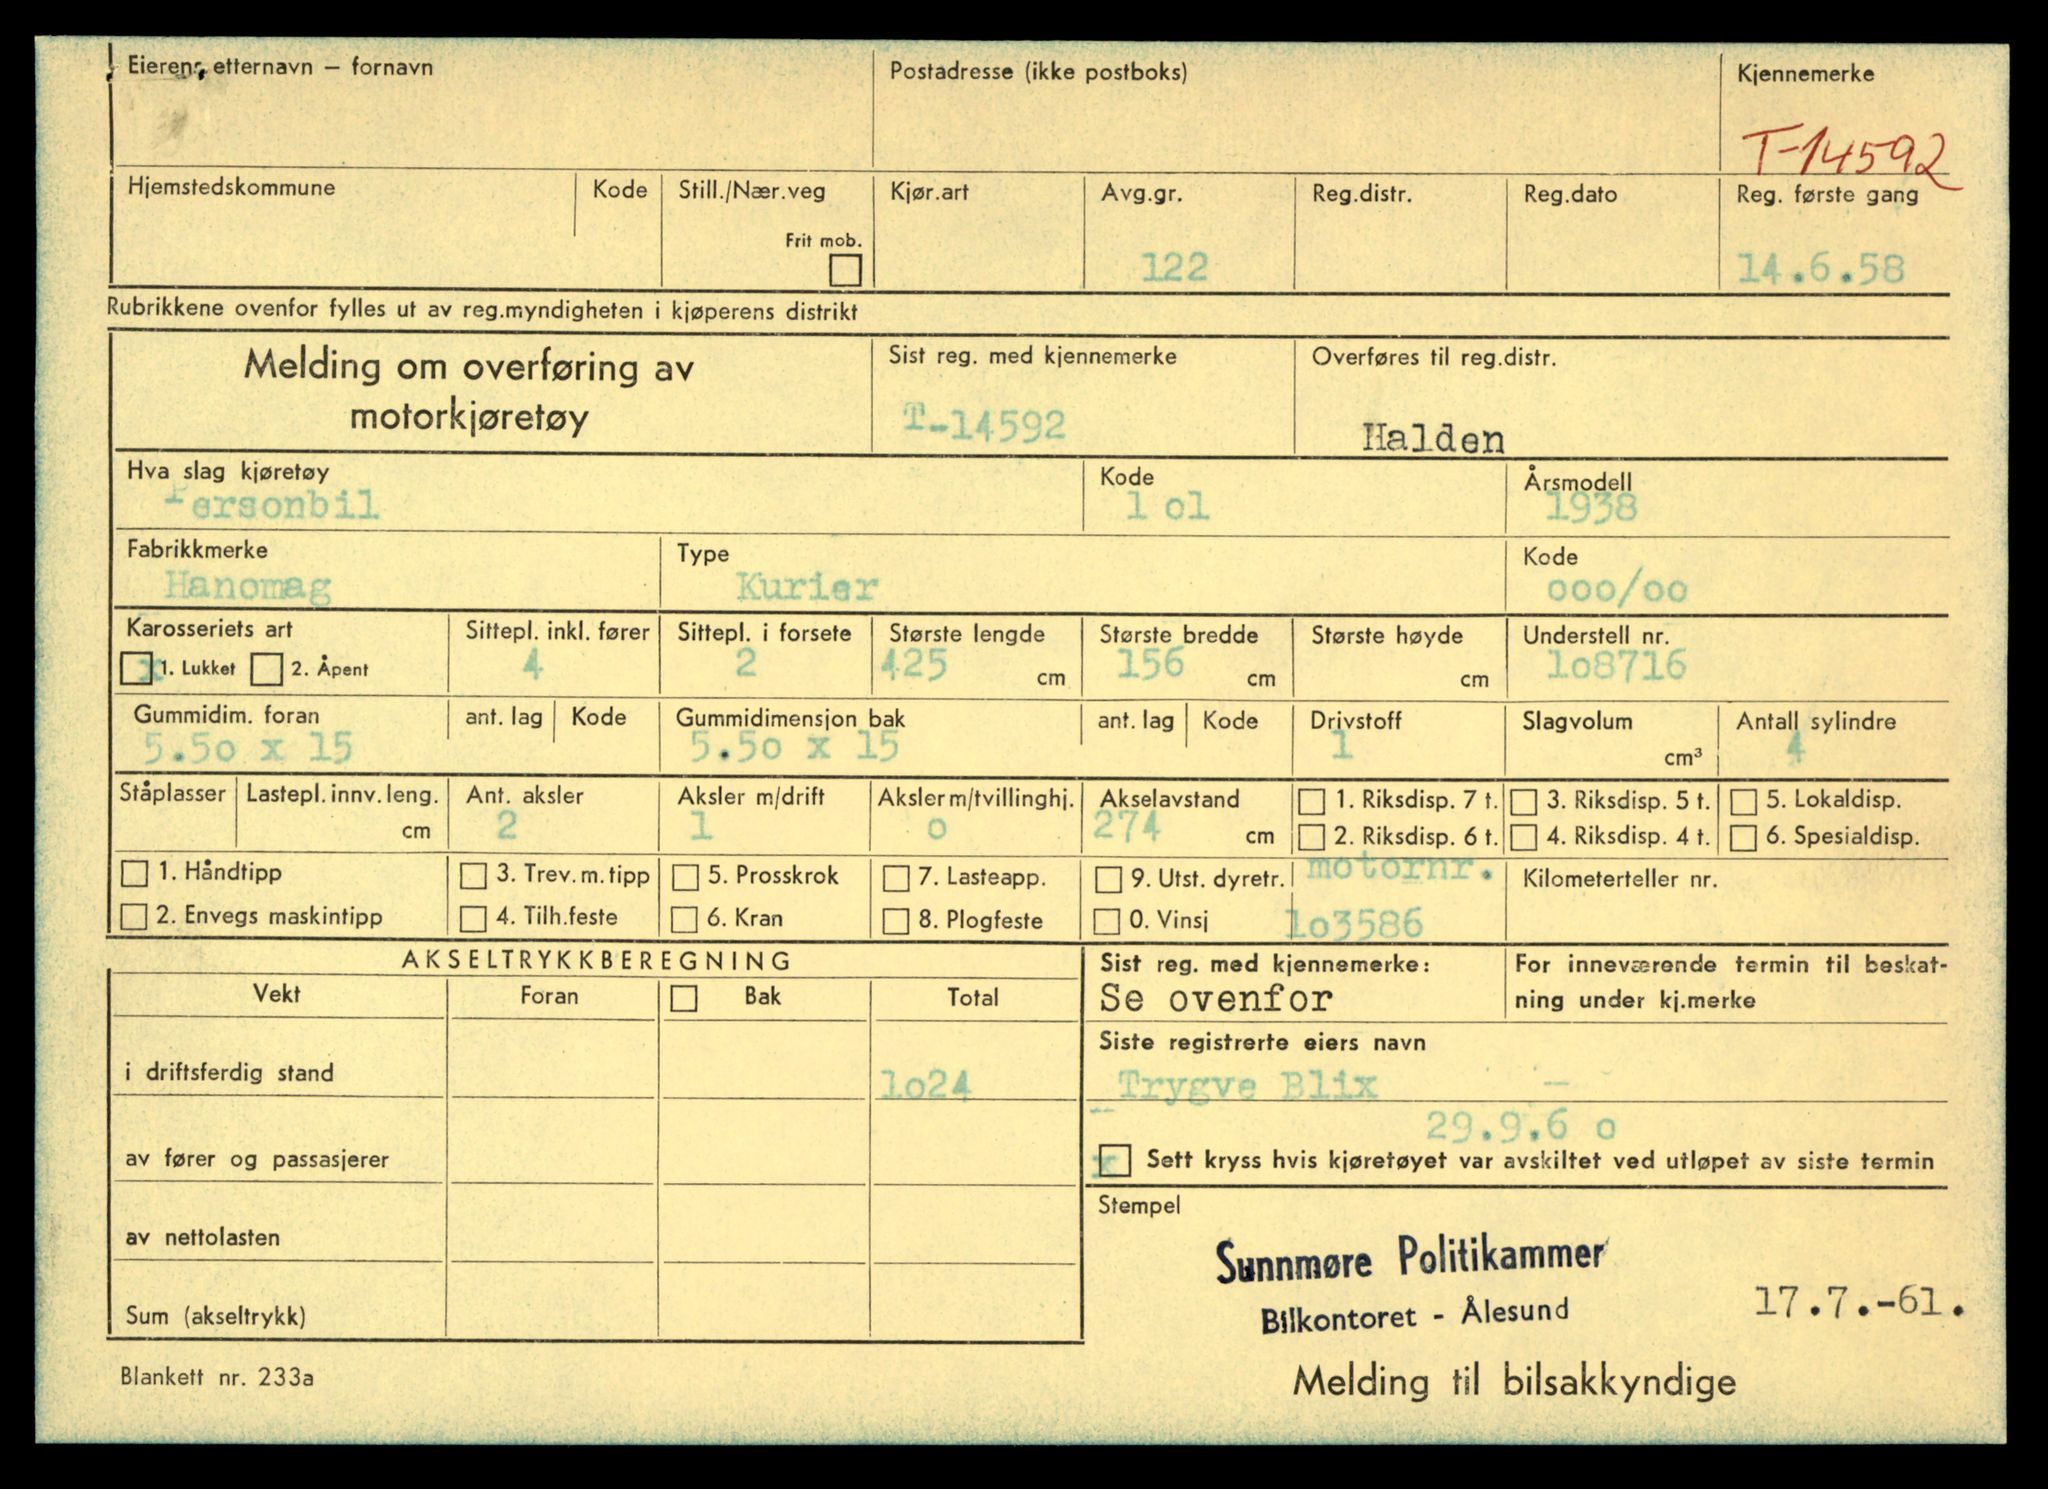 Eierens etternavn – fornavn Postadresse (ikke postboks) Kjennemerke
T-14592
Hjemstedskommune Kode Still./Nær.veg Kjør.art Avg.gr. Reg.distr. Reg.dato Reg. første gang
Frit mob.
122 14.6.58
Rubrikkene ovenfor fylles ut av reg.myndigheten i kjøperens distrikt
Melding om overføring av
motorkjøretøy
Sist reg. med kjennemerke Overføres til reg.distr.
T-14592 Halden
Hva slag kjøretøy Kode Årsmodell
Personbil 1 o1 1938
Fabrikkmerke Type Kode
Hanomag Kurier ooo/oo
Karosseriets art Sittepl. inkl. fører Sittepl. i forsete Største lengde Største bredde Største høyde Understell nr.
x 1. Lukket 2. Åpent 4 2 425 cm 156 cm cm 1o8716
Gummidim. foran ant. lag Kode Gummidimensjon bak ant. lag Kode Drivstoff Slagvolum Antall sylindre
5.5o x 15 5.5o x 15 1 cm³ 4
Ståplasser Lastepl. innv. leng. Ant. aksler Aksler m/drift Aksler m/tvillinghj. Akselavstand 1. Riksdisp. 7 t. 3. Riksdisp. 5 t. 5. Lokaldisp.
cm 2 1 o 274 cm 2. Riksdisp. 6 t. 4. Riksdisp. 4 t. 6. Spesialdisp.
1. Håndtipp 3. Trev. m. tipp 5. Prosskrok 7. Lasteapp. 9. Utst. dyretr. motornr. Kilometerteller nr.
2. Envegs maskintipp 4. Tilh.feste 6. Kran 8. Plogfeste 0. Vinsj 1o3586
AKSELTRYKKBEREGNING
Vekt Foran Bak Total
i driftsferdig stand 1o24
av fører og passasjerer
av nettolasten
Sum (akseltrykk)
Blankett nr. 233a
Sist reg. med kjennemerke: For inneværende termin til beskat-
Se ovenfor ning under kj.merke
Siste registrerte eiers navn
Trygve Blix –
–
29.9.6 o
x Sett kryss hvis kjøretøyet var avskiltet ved utløpet av siste termin
Stempel
Sunnmøre Politikammer
Bilkontoret - Ålesund 17.7.-61.
Melding til bilsakkyndige